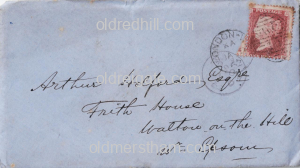 oldredhill.com
LONDON
Arthur Holford, Esqre
Frith House
Walton on the Hill
Epsom
oldmerstham.com